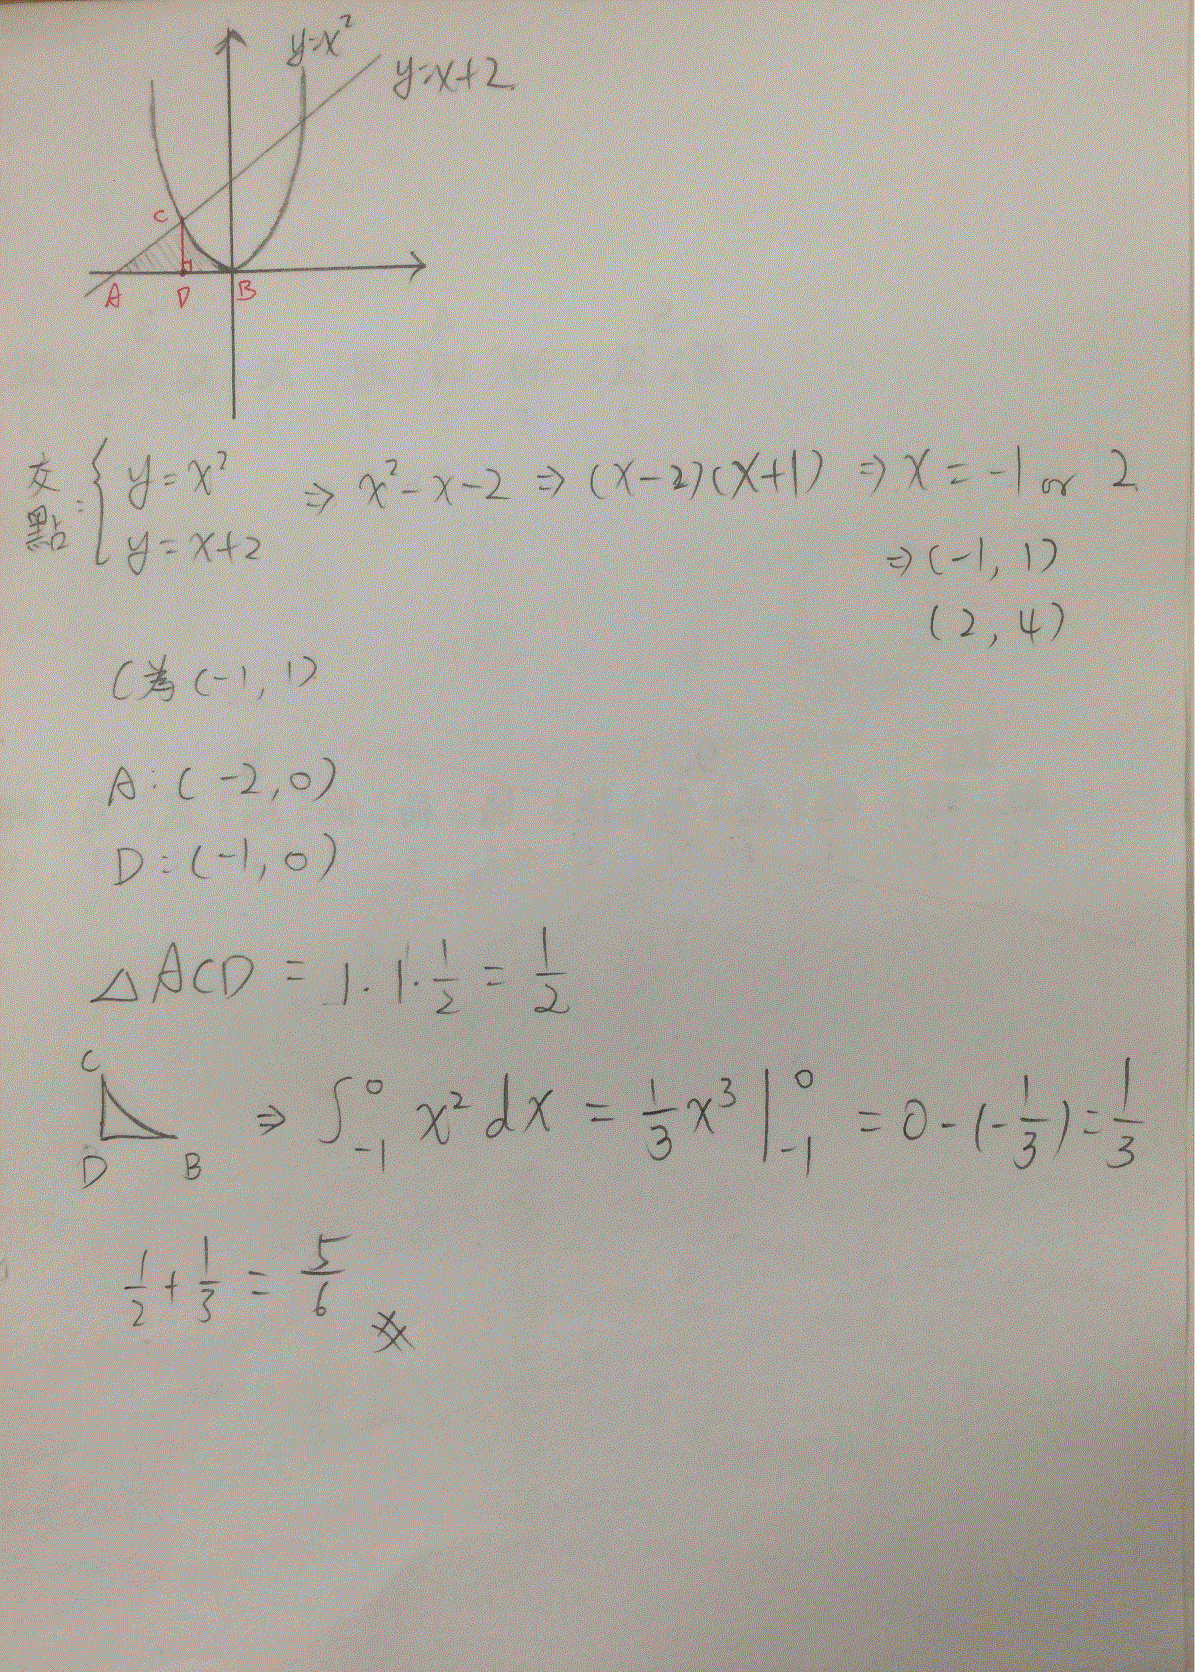 y=x²
y=x+2
C
A D B
交點: { y=x² y=x+2 ⇒ x²-x-2 ⇒ (x-2)(x+1) ⇒ x=-1 or 2
⇒ (-1, 1)
(2, 4)
C為(-1, 1)
A:(-2, 0)
D:(-1, 0)
△ACD = 1·1·1/2 = 1/2
C
D B
⇒ ∫₋₁⁰ x² dx = 1/3 x³ |₋₁⁰ = 0-(-1/3)=1/3
1/2+1/3 = 5/6